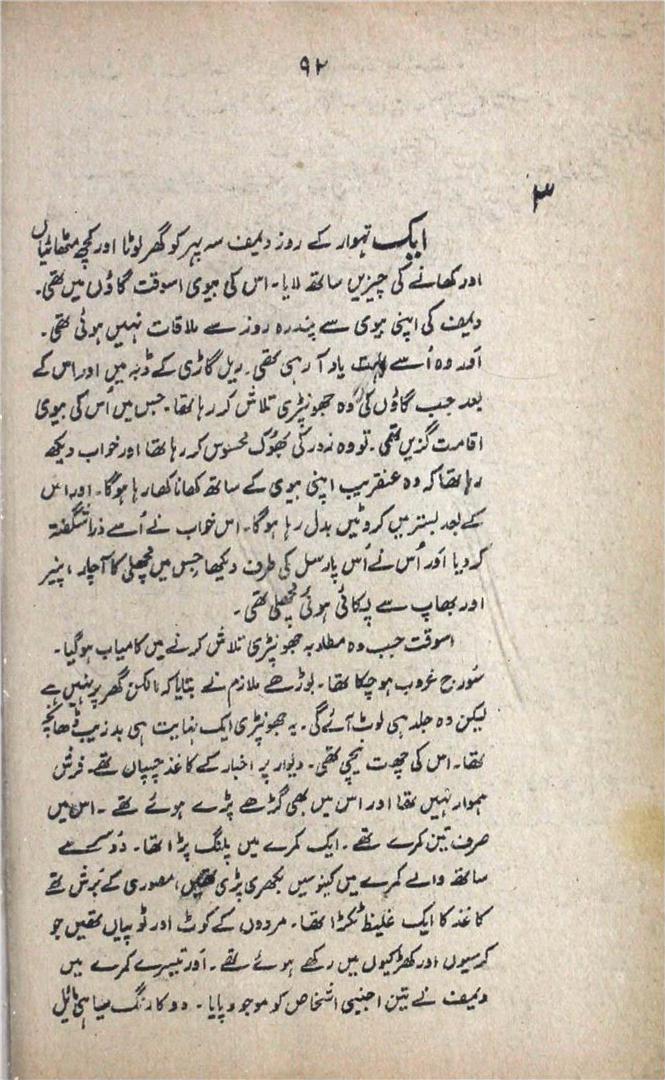 ۹۲
۳
ایک تہوار کے روز دیمف سہ پہر کو گھر لوٹا اور کچھ مٹھائیاں
اور کھانے کی چیزیں ساتھ لایا۔ اس کی بیوی اسوقت گاؤں میں تھی۔
دیمف کی اپنی بیوی سے پندرہ روز سے ملاقات نہیں ہوئی تھی۔
اور وہ اُسے بہت یاد آ رہی تھی۔ ریل گاڑی کے ڈبہ میں اور اس کے
بعد جب گاؤں کی وہ جھونپڑی تلاش کر رہا تھا۔ جس میں اُس کی بیوی
اقامت گزیں تھی۔ تو وہ زور کی بھوک محسوس کر رہا تھا اور خواب دیکھ
رہا تھا کہ وہ عنقریب اپنی بیوی کے ساتھ کھانا کھا رہا ہوگا۔ اور اس
کے بعد بستر میں کروٹیں بدل رہا ہوگا۔ اس خواب نے اُسے ذرا شگفتہ
کر دیا اور اُس نے اُس پارسل کی طرف دیکھا جس میں مچھلی کا آچار، پنیر
اور بھاپ سے پکائی ہوئی مچھلی تھی۔
اسوقت جب وہ مطلوبہ جھونپڑی تلاش کرنے میں کامیاب ہوگیا۔
سُورج غروب ہو چکا تھا۔ بوڑھے ملازم نے بتایا کہ مالکن گھر پر نہیں ہے
لیکن وہ جلد ہی لوٹ آئے گی۔ یہ جھونپڑی ایک نہایت ہی بدزیب ڈھانچہ
تھا۔ اس کی چھت نیچی تھی۔ دیوار پر اخبار کے کاغذ چسپاں تھے۔ فرش
ہموار نہیں تھا اور اس میں بھی گڑھے پڑے ہوئے تھے۔ اس میں
صرف تین کمرے تھے۔ ایک کمرے میں پلنگ پڑا تھا۔ دُوسرے
ساتھ والے کمرے میں کینوسیں بکھری پڑی تھیں، مصوری کے بُرش تھے
کاغذ کا ایک غلیظ ٹکڑا تھا۔ مردوں کے کوٹ اور ٹوپیاں تھیں جو
کرسیوں اور کھڑکیوں میں رکھے ہوئے تھے۔ اور تیسرے کمرے میں
دیمف نے تین اجنبی اشخاص کو موجود پایا۔ دو کا رنگ سیاہی مائل